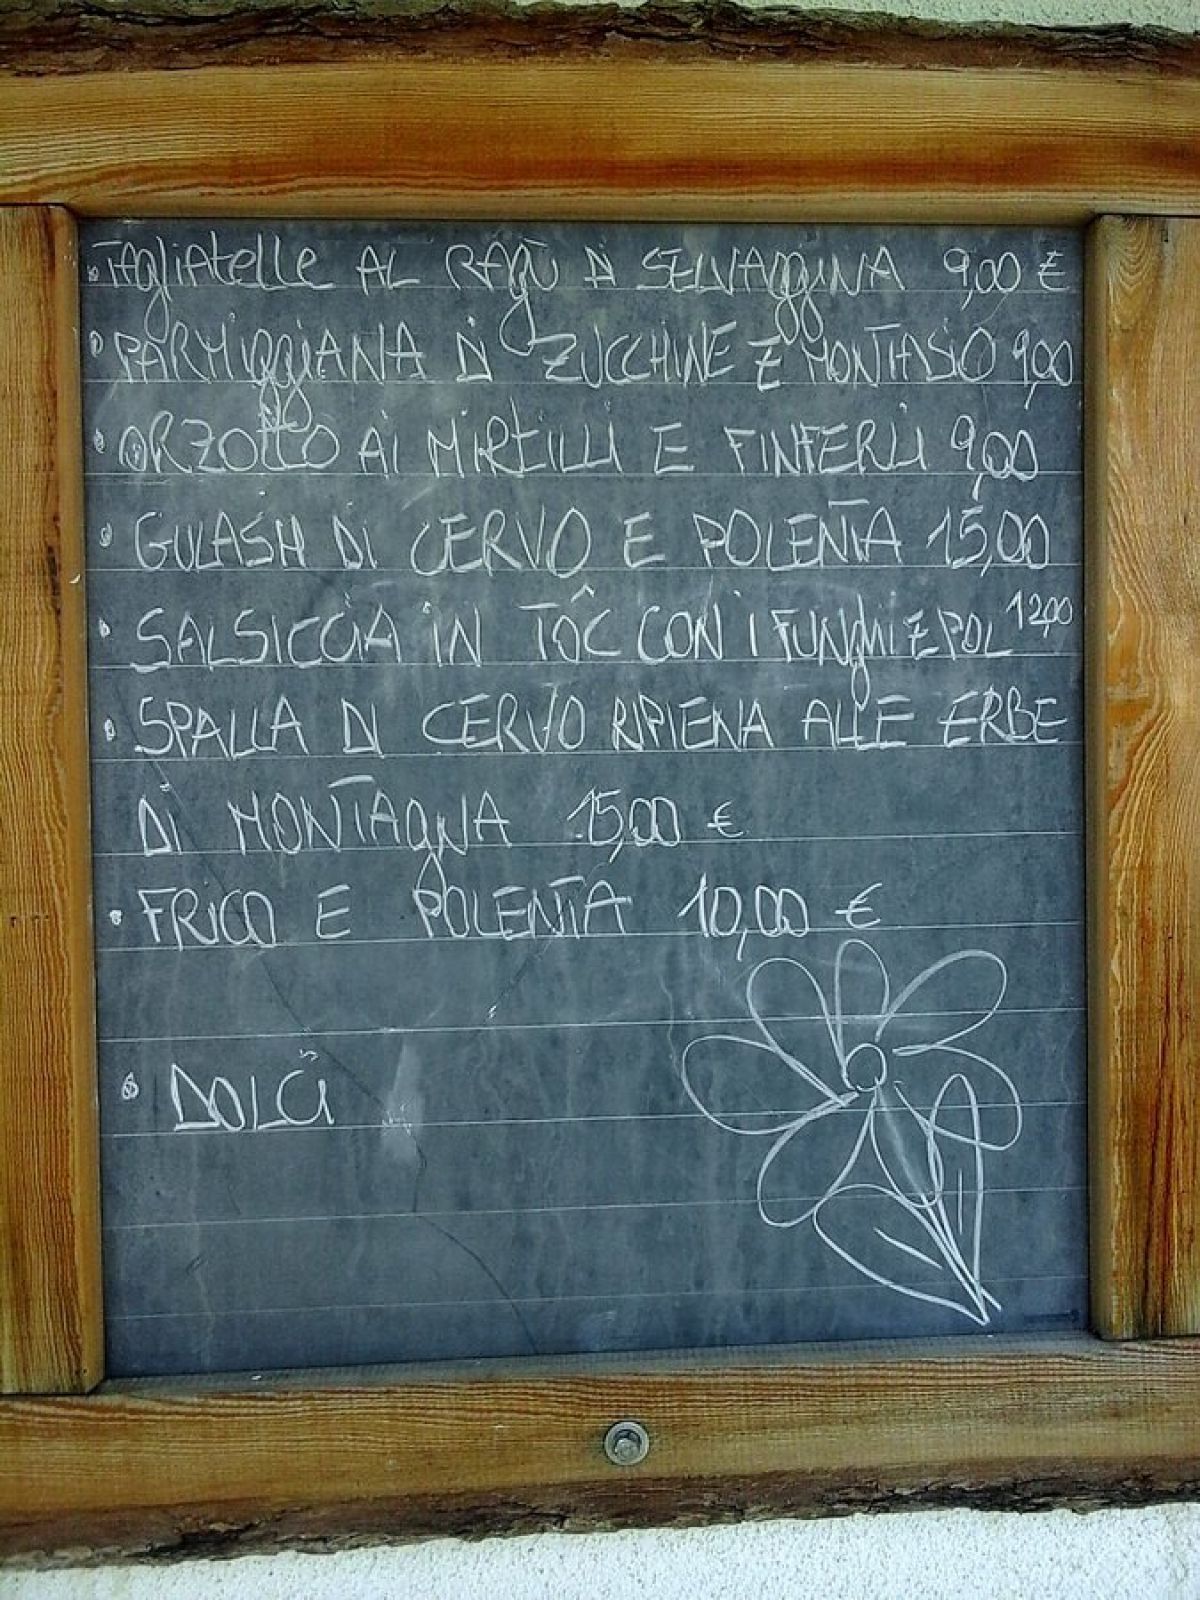 TAgliAtelle AL RAgù Di SELVAggiNA 9,00 €
PARMiggiANA Di ZUCCHINE E MONTASIO 9,00
ORZOttO Ai MiRtiLLi E FINFERLi 9,00
GULASH Di CERVO E POLENTA 15,00
SALSICCiA iN TÔC CON i FUNgHi E POL 12,00
SPALLA Di CERVO RIPIENA ALLE ERBE
Di MONTAgNA 15,00 €
FRiCO E POLENTA 10,00 €
DOLCi